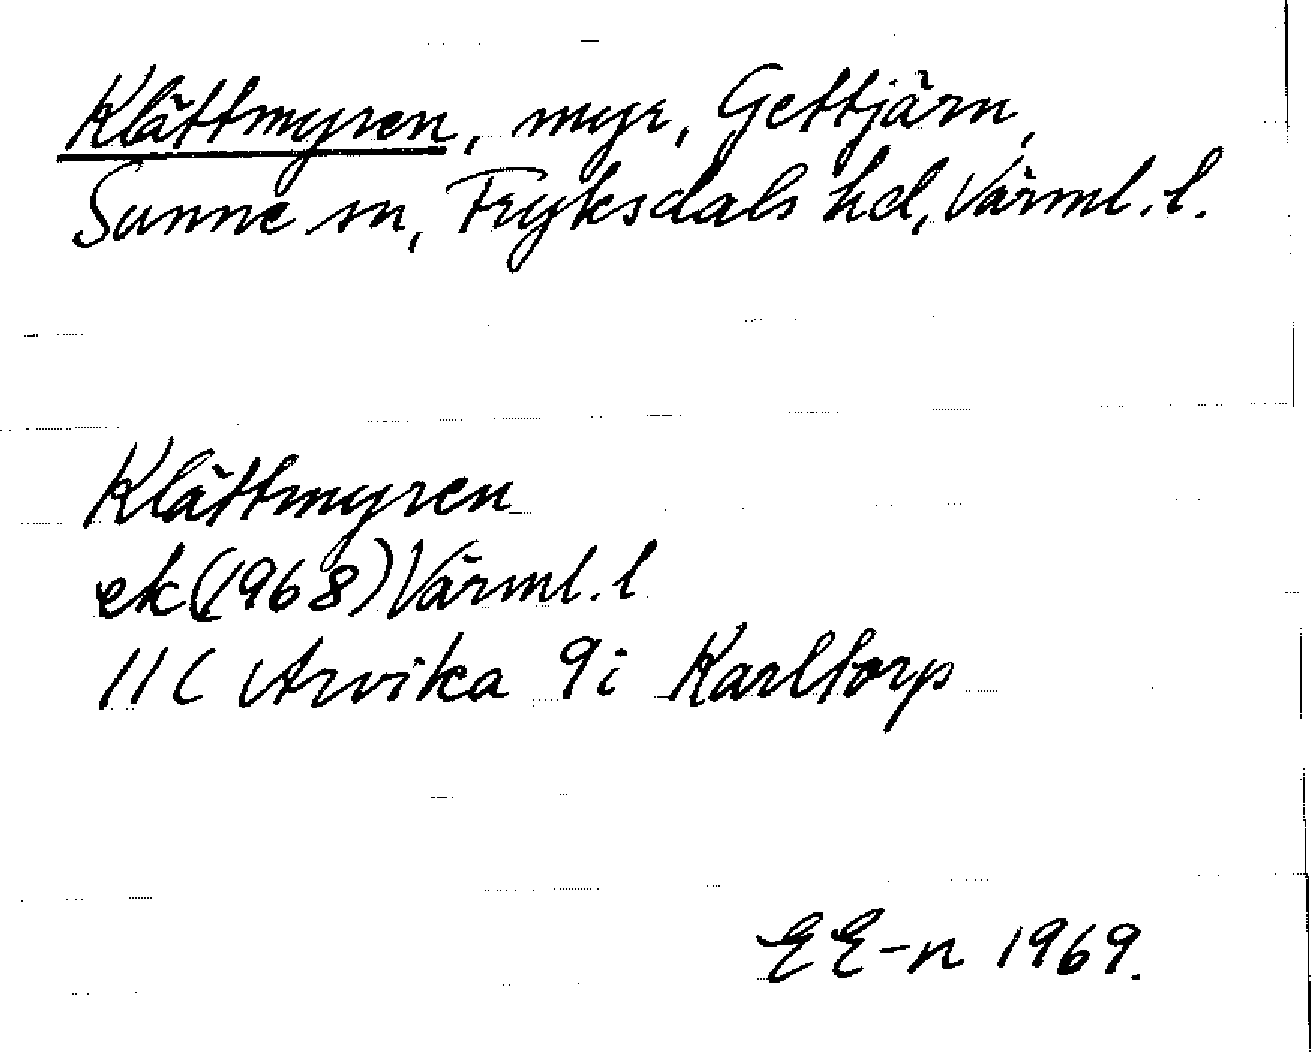 Klättmyren, myr, Gettjärn,
Sunne sn, Fryksdals hd, Värml. l.
Klättmyren
ek (1968) Värml. l
11C Arvika 9i Karltorp
EE-n 1969.